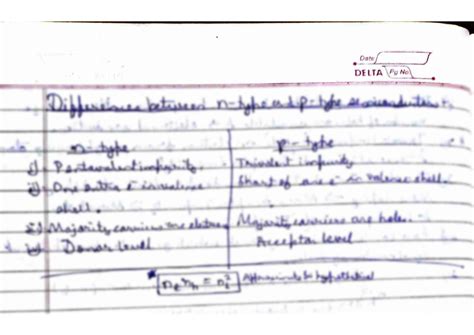 Date
DELTA Pg No.
Difference between n-type and p-type semiconductors
n-type p-type
i) Pentavalent impurity. Trivalent impurity
ii) One extra e⁻ in valence shell. Short of one e⁻ in valence shell.
iii) Majority carriers are electron Majority carriers are holes.
iv) Donor level Acceptor level
nₑnₕ = nᵢ² hypothetical